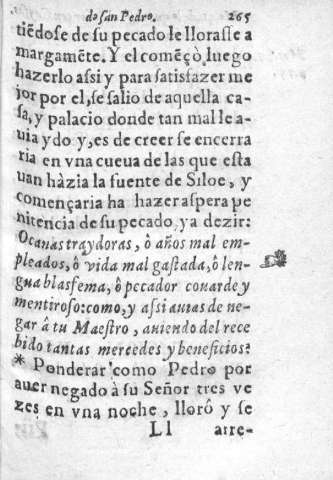 do san Pedro. 265
tiẽdose de su pecado le llorasse a
margamẽte. Y el comẽçò, luego
hazerlo assi y para satisfazer me
jor por el, se salio de aquella ca-
sa, y palacio donde tan mal le a-
uia ydo y, es de creer se encerra
ria en vna cueua de las que esta
uan hàzia la fuente de Siloe, y
començaria ha hazer aspera pe
nitencia de su pecado, ya dezir:
O canas traydoras, ô años mal em-
pleados, ô vida mal gastada, ô len-
gua blasfema, ô pecador couarde y
mentiroso: como, y assi auias de ne-
gar â tu Maestro, auiendo del rece
bido tantas mercedes y beneficios?
* Ponderar como Pedro por
auer negado à su Señor tres ve
zes en vna noche, llorô y se
Ll arre-